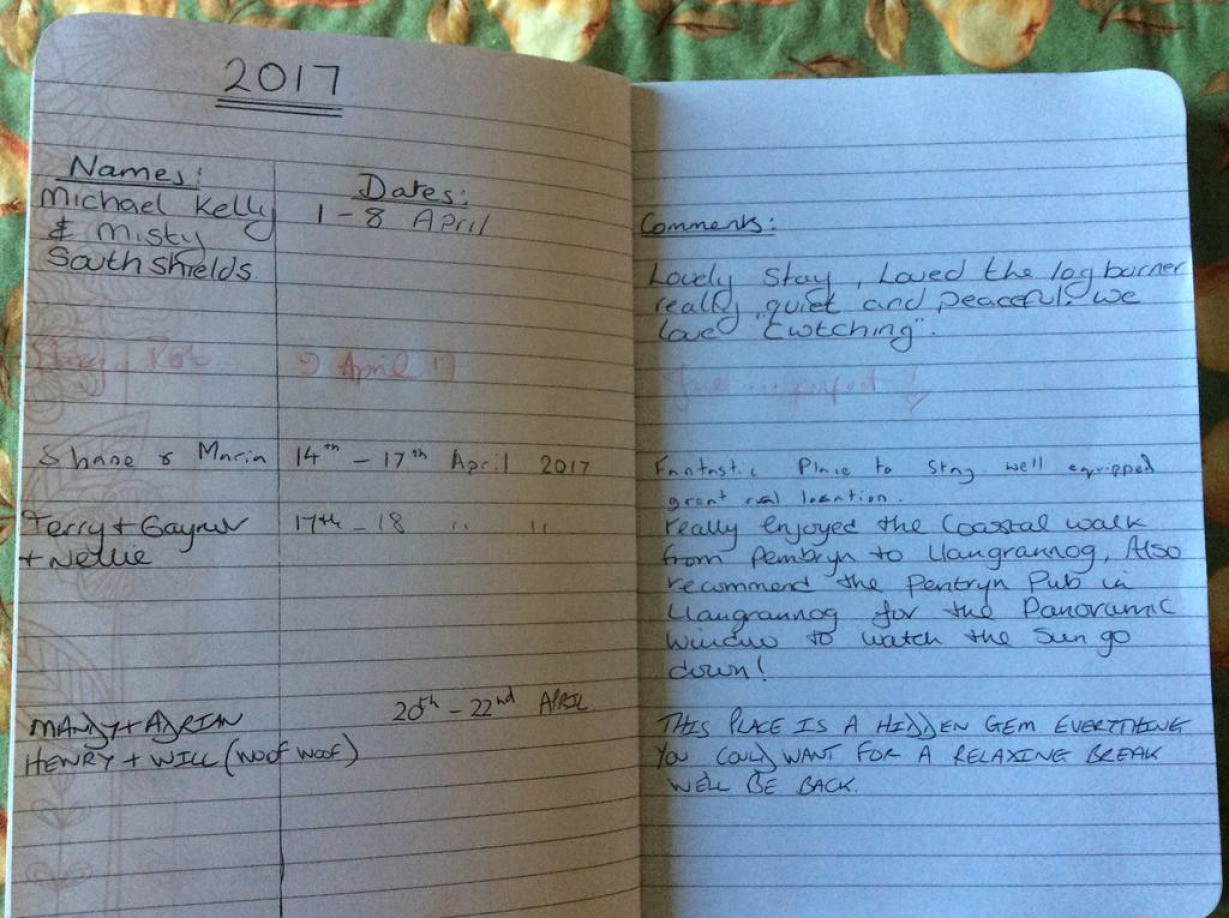 2017
Names:
Dates:
Comments:
Michael Kelly
& Misty
South Shields
1 - 8 April
Lovely Stay, Loved the log burner
really quiet and peaceful. we
love "Cwtching".
April 17
perfect !
Shane & Maria
14th - 17th April 2017
Fantastic Place to stay well equipped
great location.
Terry + Gaynor
+ Nellie
17th - 18 " "
really enjoyed the Coastal walk
from Pembryn to Llangrannog, Also
recommend the Pentryn Pub in
Llangrannog for the Panoramic
Window to watch the Sun go
down!
MANDY + ADRIAN
HENRY + WILL (WOOF WOOF)
20th - 22nd APRIL
THIS PLACE IS A HIDDEN GEM EVERYTHING
YOU COULD WANT FOR A RELAXING BREAK
WE'LL BE BACK.